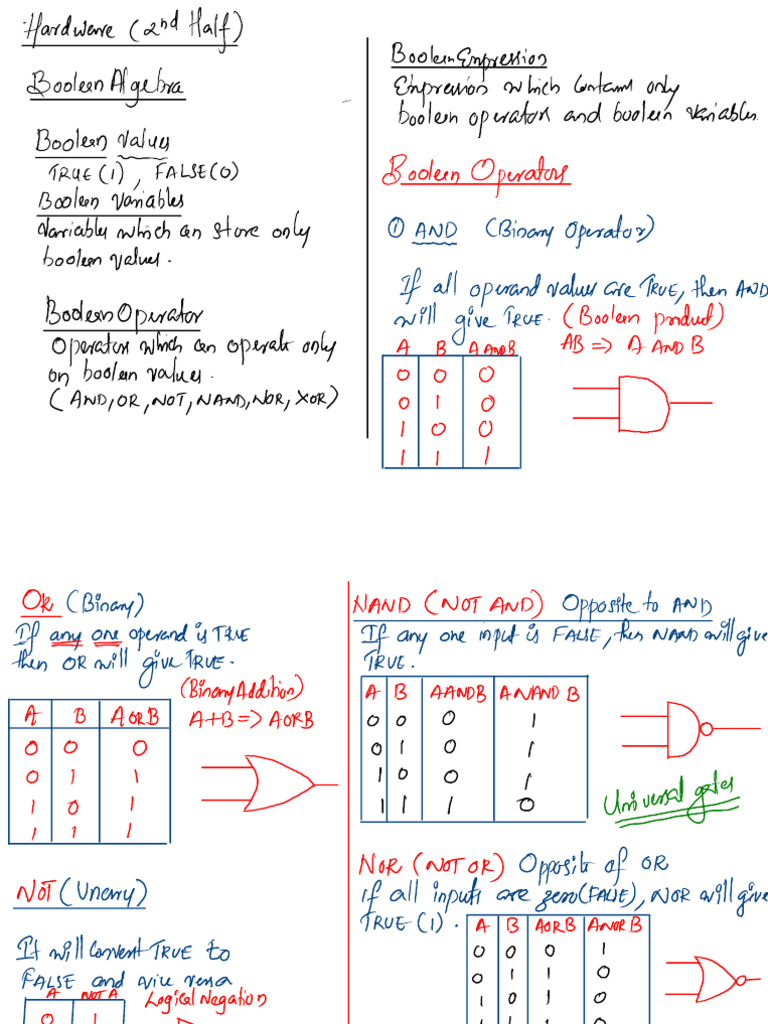 Hardware (2nd Half)
Boolean Algebra
Boolean values
TRUE (1), FALSE (0)
Boolean Variables
Variables which can store only
boolean values.
Boolean Operator
Operators which can operate only
on boolean values.
(AND, OR, NOT, NAND, NOR, XOR)
Boolean Expression
Expression which contains only
boolean operators and boolean variables.
Boolean Operators
① AND (Binary Operator)
If all operand values are TRUE, then AND
will give TRUE. (Boolean product)
AB => A AND B
A B A AND B
0 0 0
0 1 0
1 0 0
1 1 1
OR (Binary)
If any one operand is TRUE
then OR will give TRUE.
(Binary Addition)
A+B => A OR B
A B A OR B
0 0 0
0 1 1
1 0 1
1 1 1
NOT (Unerry)
It will convert TRUE to
FALSE and vice versa
Logical Negation
A NOT A
0 1
NAND (NOT AND) Opposite to AND
If any one input is FALSE, then NAND will give
TRUE.
A B A AND B A NAND B
0 0 0 1
0 1 0 1
1 0 0 1
1 1 1 0
Universal gates
NOR (NOT OR) Opposite of OR
if all inputs are zero (FALSE), NOR will give
TRUE (1).
A B A OR B A NOR B
0 0 0 1
0 1 1 0
1 0 1 0